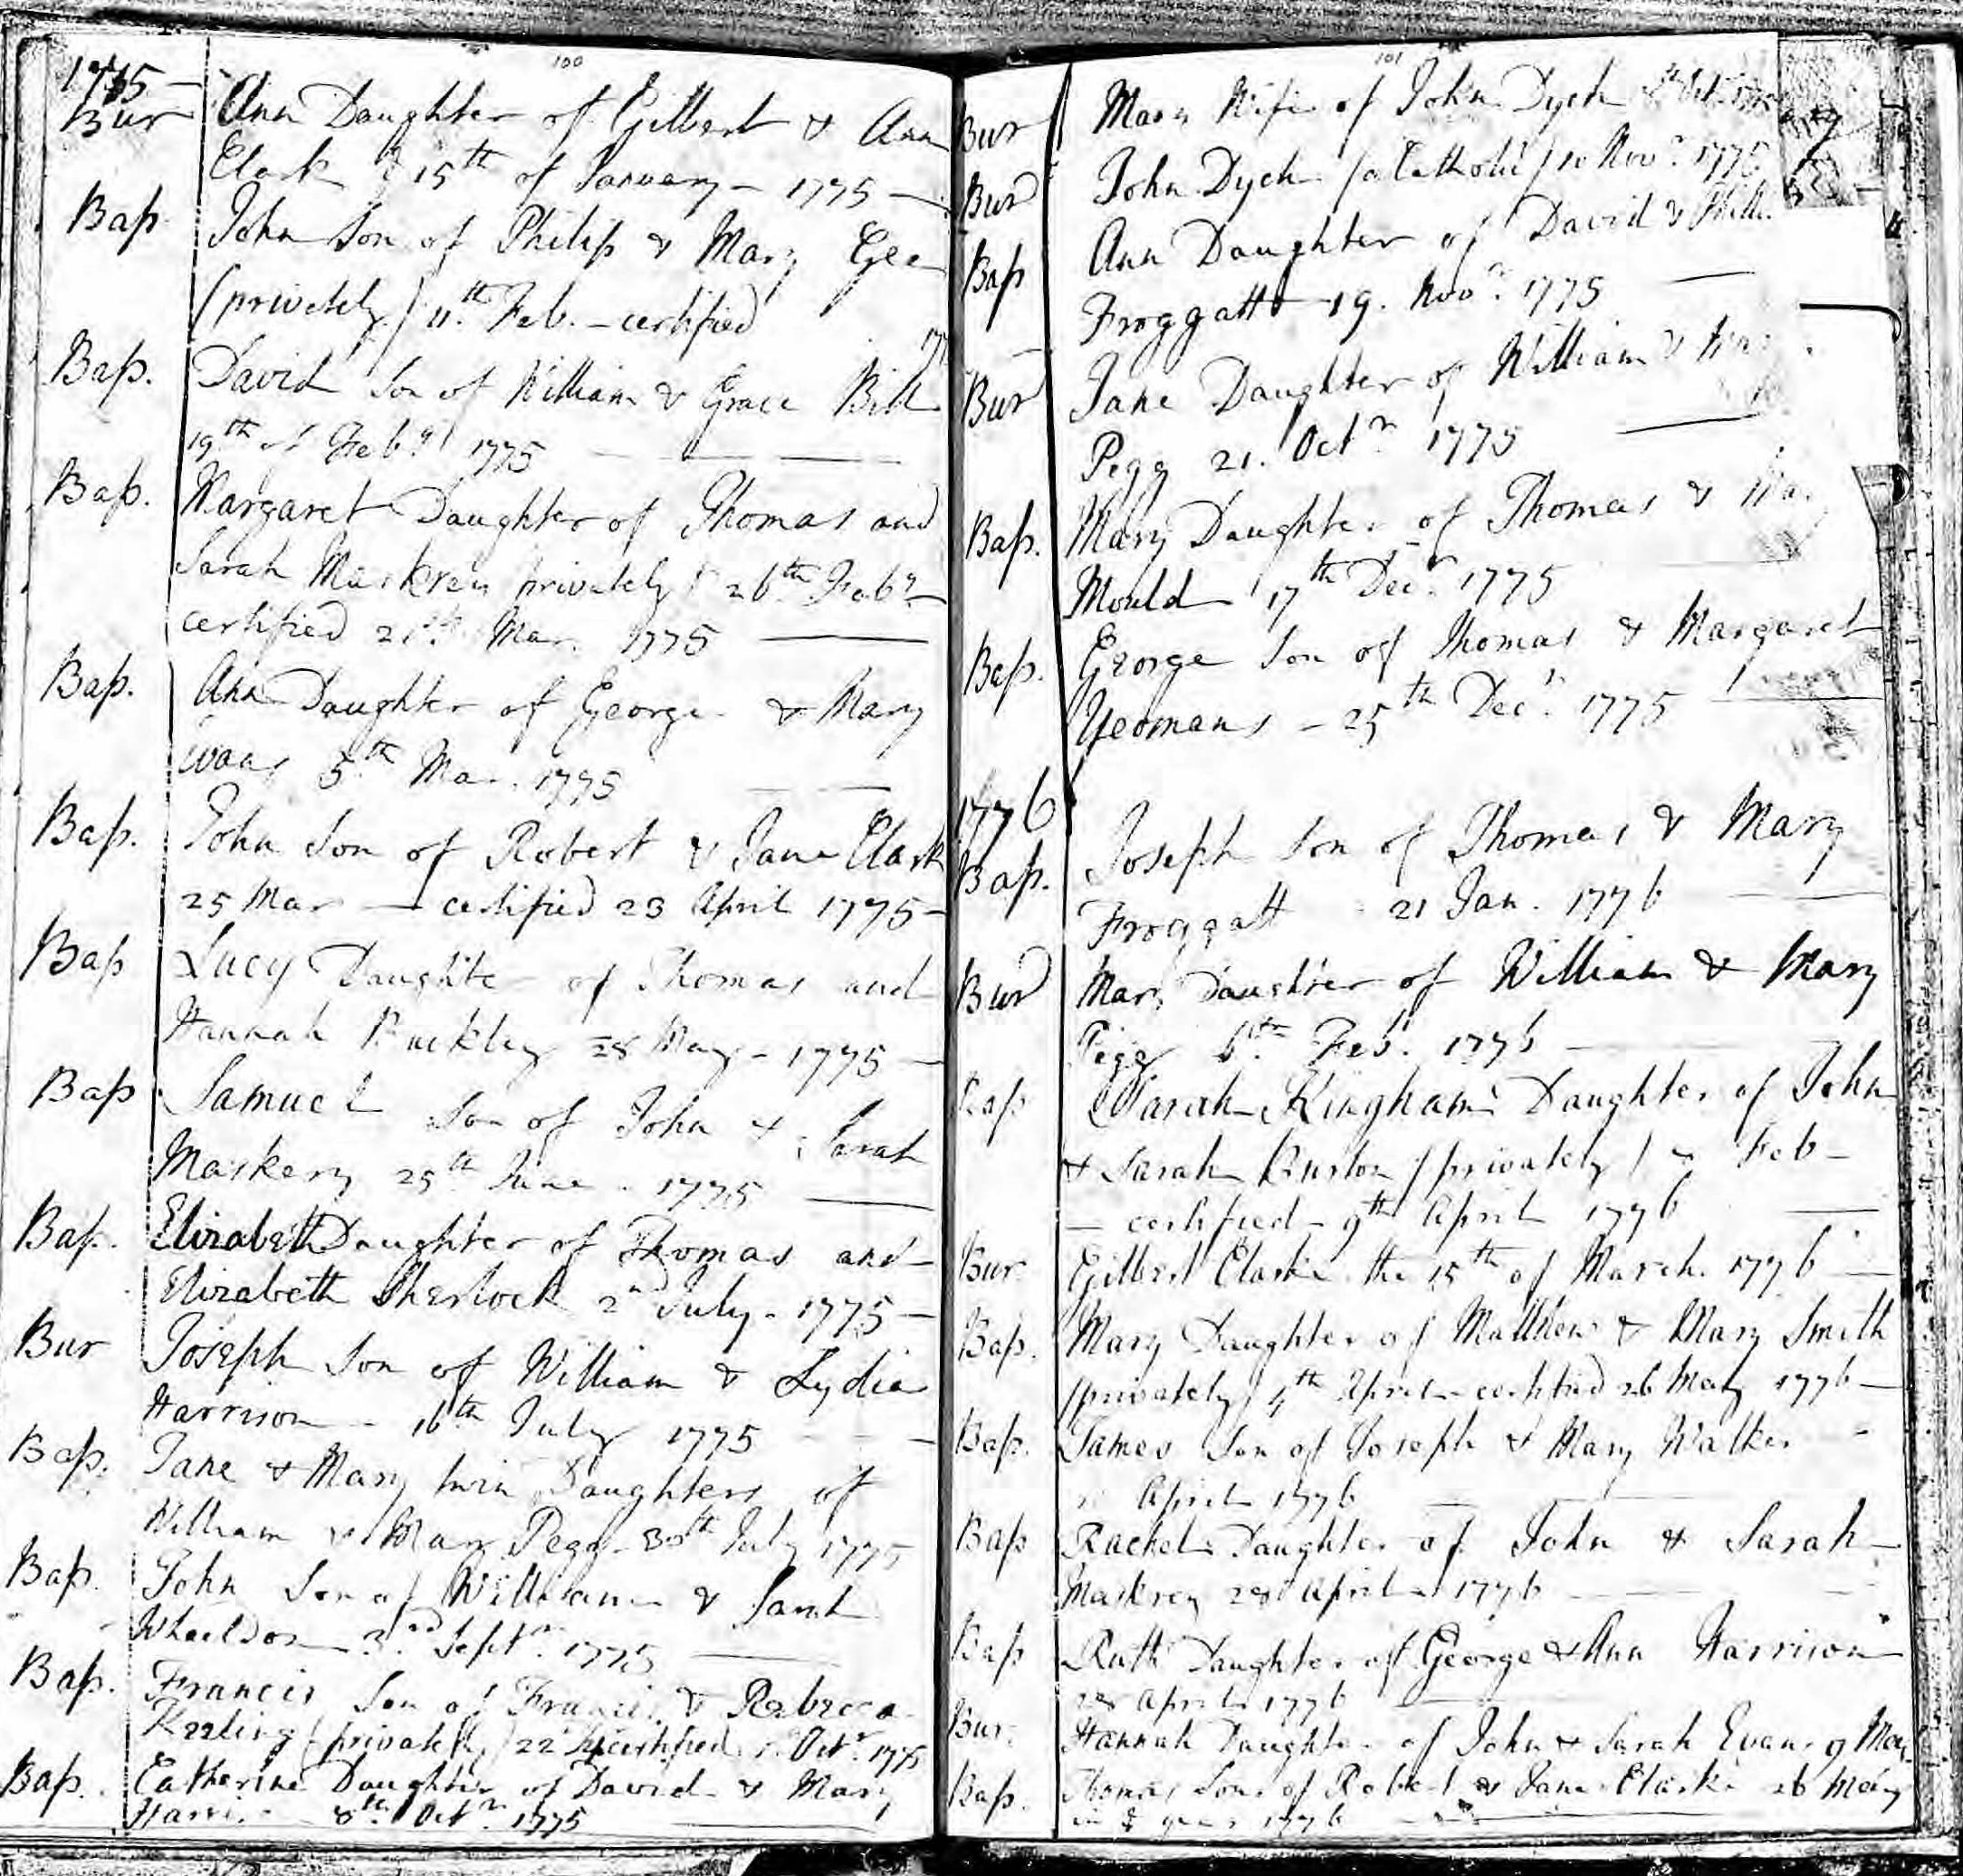 100
1775
Bur Ann Daughter of Gilbert & Ann
Clark 15th of January - 1775
Bap John Son of Philip & Mary Gee
(privately) 11th Feb. - certified
Bap. David Son of William & Grace Bill
19th of Feby 1775
Bap. Margaret Daughter of Thomas and
Sarah Maskrey privately 26th Feby
certified 21st Mar. 1775
Bap. Ann Daughter of George & Mary
5th Mar. 1775
Bap. John Son of Robert & Jane Clark
25 Mar - certified 23 April 1775
Bap Lucy Daughter of Thomas and
Hannah Buckley 28 May - 1775
Bap Samuel Son of John & Sarah
Maskery 25th June - 1775
Bap. Elizabeth Daughter of Thomas and
Elizabeth Sherlock 2nd July - 1775
Bur Joseph Son of William & Lydia
Harrison - 16th July 1775
Bap. Jane & Mary twin Daughters of
William & Mary Pegg - 30th July 1775
Bap. John Son of William & Sarah
Wheeldon 3rd Septr 1775
Bap. Francis Son of Francis & Rebecca
Keeling (privately) 22 certified Octr 1775
Bap. Catherine Daughter of David & Mary
Harri 8th Octr 1775
101
Bur Mary Wife of John Dych
Bur John Dych (a Catholic) 10 Novr 1775
Bap Ann Daughter of David &
Froggatt 19. Novr 1775
Bur Jane Daughter of William &
Pegg 21. Octr 1775
Bap. Mary Daughter of Thomas &
Mould 17th Decr 1775
Bap. George Son of Thomas & Margaret
Yeomans - 25th Decr 1775
1776
Bap. Joseph Son of Thomas & Mary
Froggatt 21 Jan. 1776
Bur Mary Daughter of William & Mary
Pegg 6th Feb. 1776
Bap Sarah Kingham Daughter of John
& Sarah Burton (privately) Feb -
- certified - 9th April 1776
Bur Gilbert Clarke the 15th of March. 1776
Bap. Mary Daughter of Matthew & Mary Smith
(privately) 4th April - certified 26 May 1776
Bap. James Son of Joseph & Mary Walker
April 1776
Bap Rachel Daughter of John & Sarah
Maskrey 28 April 1776
Bap Ruth Daughter of George & Ann Harrison
28 April 1776
Bur. Hannah Daughter of John & Sarah Evans 9 May
Bap. Thomas Son of Robert & Jane Clarke 26 May
1776